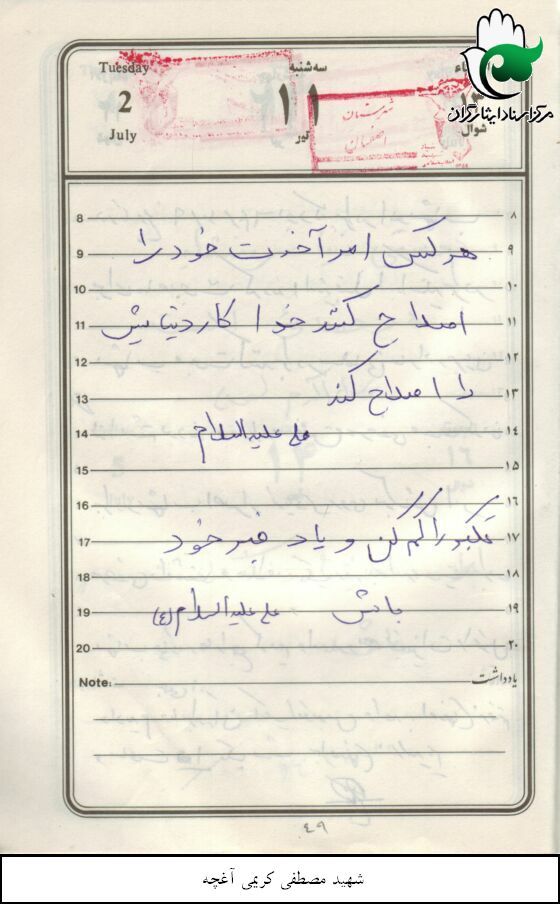 Tuesday
2
July
سه‌شنبه
۱۱
تیر
شوال
مرکز اسناد ایثارگران
شهرستان
اصفهان
8 ۸
هر کس امر آخرت خود را
9 ۹
10 ۱۰
اصلاح کند خدا کار دنیایش
11 ۱۱
12 ۱۲
را اصلاح کند
13 ۱۳
علی علیه السلام
14 ۱۴
15 ۱۵
16 ۱۶
تکبر را کم کن و یاد قبر خود
17 ۱۷
18 ۱۸
باش علی علیه السلام (ع)
19 ۱۹
20 ۲۰
Note: یادداشت
۴۹
شهید مصطفی کریمی آغچه